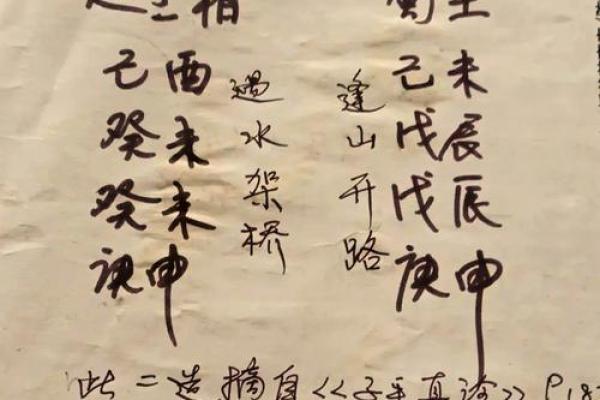 己酉
癸未
癸未
庚申
遇水架桥
逢山开路
己未
戊辰
戊辰
庚申
此二造摘自《子平真诠》